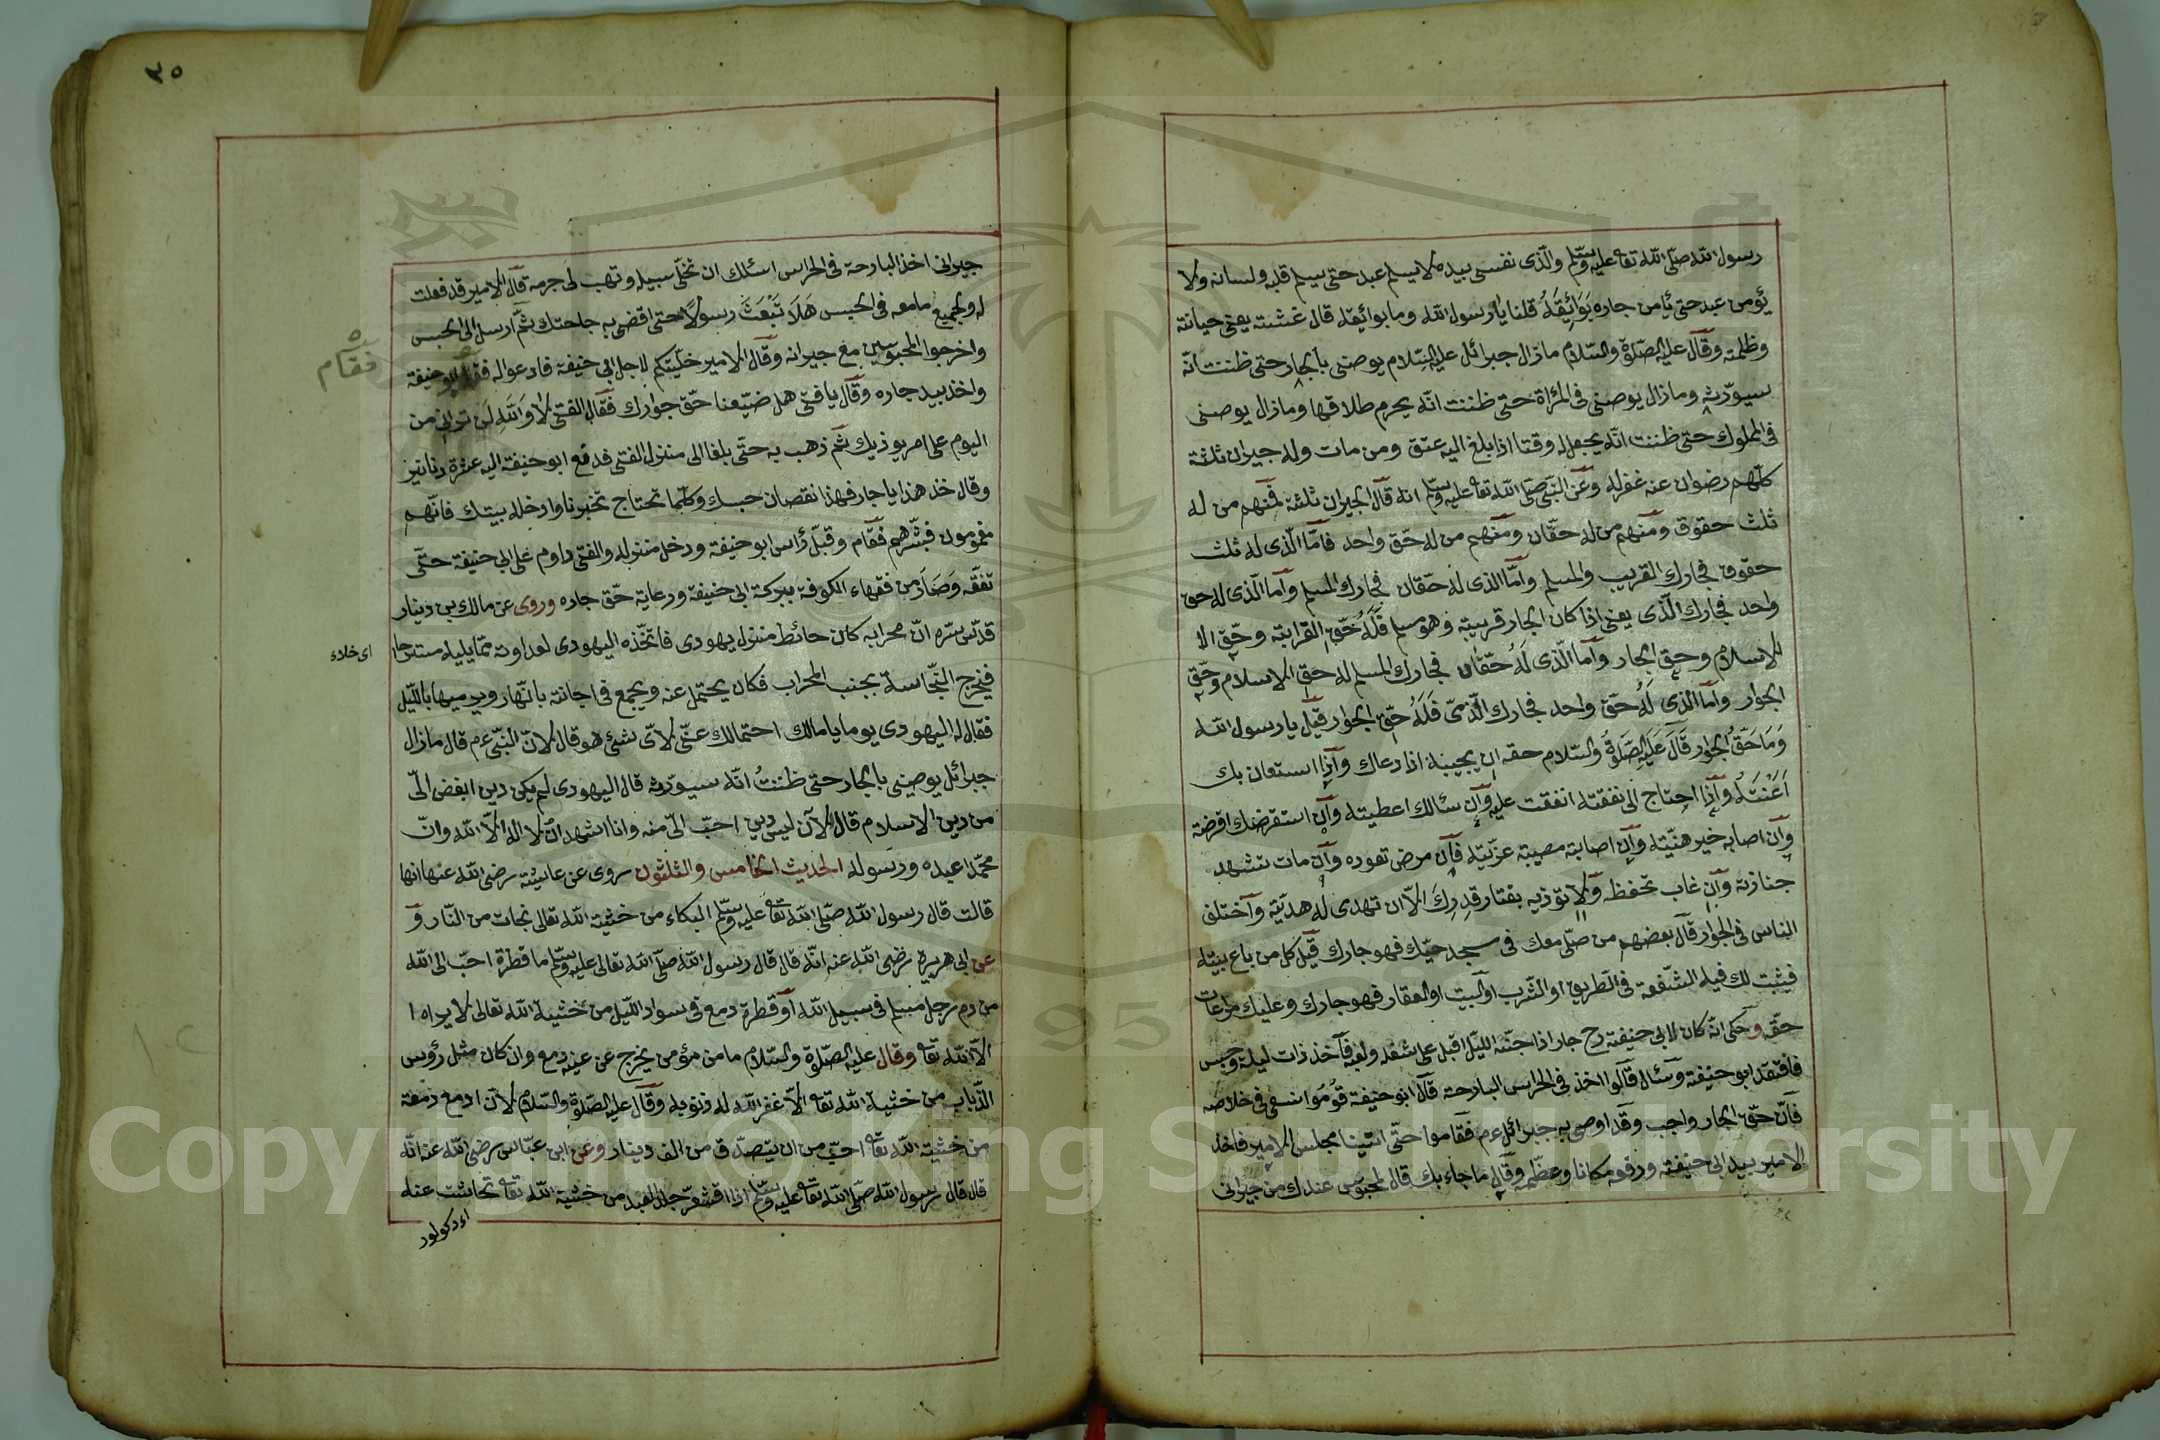 رسول الله صلى الله تعا عليه وسلم والذى نفسى بيده لا يسلم عبد حتى يسلم قلبه ولسانه ولا
يؤمن عبد حتى يأمن جاره بوائقه قلنا يا رسول الله وما بوائقه قال غشته يعنى خيانته
وظلمته وقال عليه الصلوة والسلام ما زال جبرائل عليه السلام يوصنى بالجار حتى ظننت انه
سيورثه وما زال يوصنى فى المرأة حتى ظننت انه يحرم طلاقها وما زال يوصنى
فى المملوك حتى ظننت انه يجعل له وقتا اذا بلغ اليه عتق ومن مات وله جيران ثلثة
كلهم رضوان عنه غفر له وعن النبى صلى الله تعا عليه وسلم انه قال الجيران ثلثة فمنهم من له
ثلث حقوق ومنهم من له حقان ومنهم من له حق واحد فاما الذى له ثلث
حقوق فجارك القريب والمسلم واما الذى له حقان فجارك المسلم واما الذى له حق
واحد فجارك الذى يعنى اذا كان الجار قريبة وهو مسلم فله حق القرابة وحق الا
الاسلام وحق الجار واما الذى له حقان فجارك المسلم له حق الاسلام وحق
الجوار واما الذى له حق واحد فجارك الذمى فله حق الجوار قيل يا رسول الله
وما حق الجوار قال عليه الصلوة والسلام حقه ان يجيبه اذا دعاك واذا استعان بك
اعنته واذا احتاج الى نفقته انفقت عليه وان سألك اعطيته وان استقرضك اقرضته
وان اصابه خير هنيته وان اصابته مصيبة عزيته فان مرض تعوده وان مات تشهد
جنازته وان غاب تحفظ ولا توذيه بقتار قدرك الا ان تهدى له هدية واختلف
الناس فى الجوار قال بعضهم من صلى معك فى مسجد حيك فهو جارك قيل كل من باع بيته
فيثبت لك فيه الشفعة فى الطريق او الشرب او البيت او العقار فهو جارك وعليك مراعات
حقه وحكى انه كان لابى حنيفة رح جار اذا جنه الليل اقبل على شغله ولعبه فاخذ ذات ليلة وحبس
فافتقد ابو حنيفة وسأل قالوا اخذ فى الحراس البارحة قال ابو حنيفة قوموا نسعى فى خلاصه
فان حق الجار واجب وقد اوصى به جبرائل ءم فقاموا حتى اتينا مجلس الامير فاخذ
الامير بيد ابى حنيفة ورفع مكانا وعظمه وقال ما جاء بك قال لمحبوس عندك من جيرانى
٣٥
جيرانى اخذ البارحة فى الحراس اسئلك ان تخلى سبيله وتهب لى جرمه قال الامير قد فعلت
له ولجميع ما معه فى الحبس هلا تبعث رسولا حتى اقضى به حاجتك ثم ارسل الى الحبس
واخرجوا المحبوسين مع جيرانه وقال الامير خليتكم لاجل ابى حنيفة فادعوا له فقام ابو حنيفة
فقام
واخذ بيد جاره وقال يا فتى هل ضيعنا حق جوارك فقال الفتى لا والله لن ترانى من
اليوم على امر يوذيك ثم ذهب به حتى بلغا الى منزل الفتى فدفع ابو حنيفة اليه عشرة دنانير
وقال خذ هذا يا جار فهذا نقصان حبسك وكلما تحتاج تخبرنا وادخله بيتك فانهم
مغمومون فبشرهم فقام وقبل رأس ابو حنيفة ودخل منزله والفتى داوم على ابى حنيفة حتى
تفقه وصار من فقهاء الكوفة ببركة ابى حنيفة ورعاية حق جاره وروى عن مالك بن دينار
قدس سره ان محرابه كان حائط منزل يهودى فاتخذه اليهودى لعداوته مما يليه مستراحا
اى خلاء
فيخرج النجاسة بجنب المحراب فكان يحتمل عنه ويجمع فى اجانة بالنهار ويرميها بالليل
فقال له اليهودى يوما يا مالك احتمالك عنى لاى شئ هو قال لان النبى ءم قال ما زال
جبرائل يوصينى بالجار حتى ظننت انه سيورثه قال اليهودى لم يكن دين ابغض الى
من دين الاسلام قال الآن ليس دين احب الى منه وانا اشهد ان لا اله الا الله وان
محمدا عبده ورسوله الحديث الخامس والثلثون روى عن عايشة رضى الله عنها انها
قالت قال رسول الله صلى الله تعا عليه وسلم البكاء من خشية الله تعالى نجات من النار و
عن ابى هريرة رضى الله عنه انه قال قال رسول الله صلى الله تعالى عليه وسلم ما قطرة احب الى الله
من دم رجل مسلم فى سبيل الله او قطرة دمع فى سواد الليل من خشية الله تعالى لا يراه ا
الا الله تعا وقال عليه الصلوة والسلام ما من مؤمن يخرج عن عينه دمع وان كان مثل رؤس
الذباب من خشية الله تعا الا غفر الله له ذنوبه وقال عليه الصلوة والسلام لان ادمع دمعة
من خشية الله تعا احب من ان يتصدق من الف دينار وعن ابن عباس رضى الله عنه انه
قال قال رسول الله صلى الله تعا عليه وسلم اذا اقشعر جلد العبد من خشية الله تعا تحاتت عنه
Copyright © King Saud University